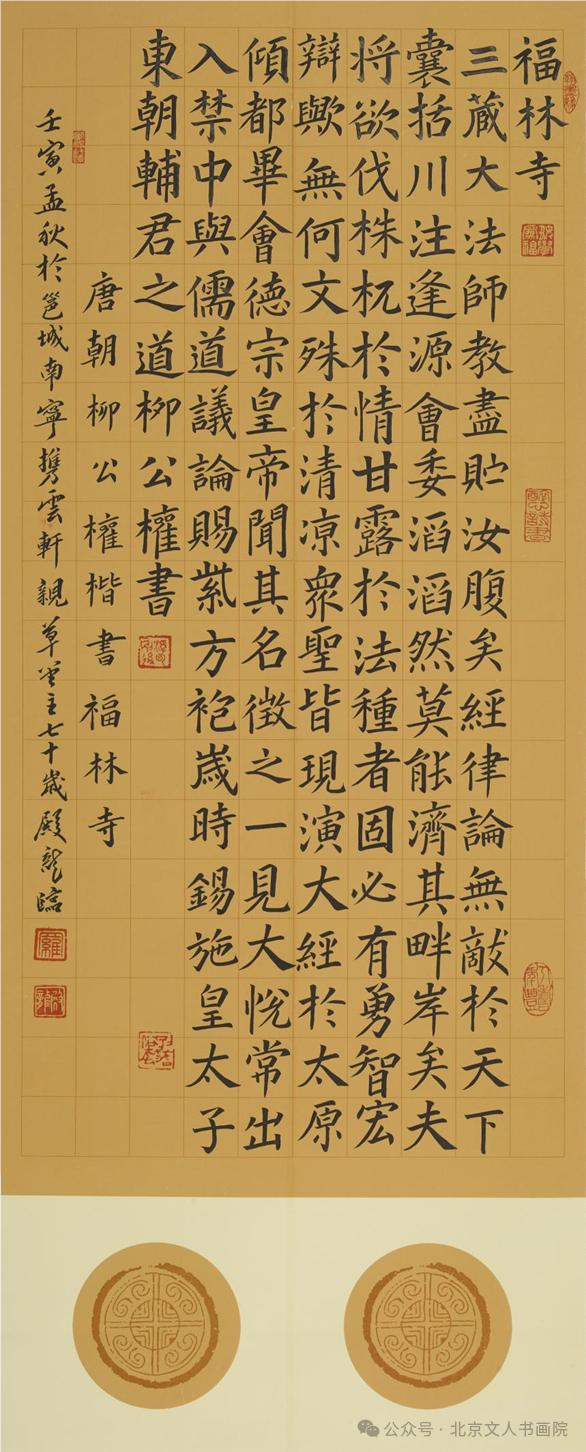 福林寺
三藏大法師教盡貯汝腹矣經律論無敵於天下
囊括川注逢源會委滔滔然莫能濟其畔岸矣夫
将欲伐株杌於情甘露於法種者固必有勇智宏
辯歟無何文殊於清凉眾聖皆現演大經於太原
傾都畢會德宗皇帝聞其名徴之一見大悅常出
入禁中與儒道議論賜紫方袍歲時錫施皇太子
東朝輔君之道柳公權書
唐朝柳公權楷書福林寺
壬寅孟秋於邕城南寧攜雲軒親草堂主七十歲殿龍臨
公众号 · 北京文人书画院